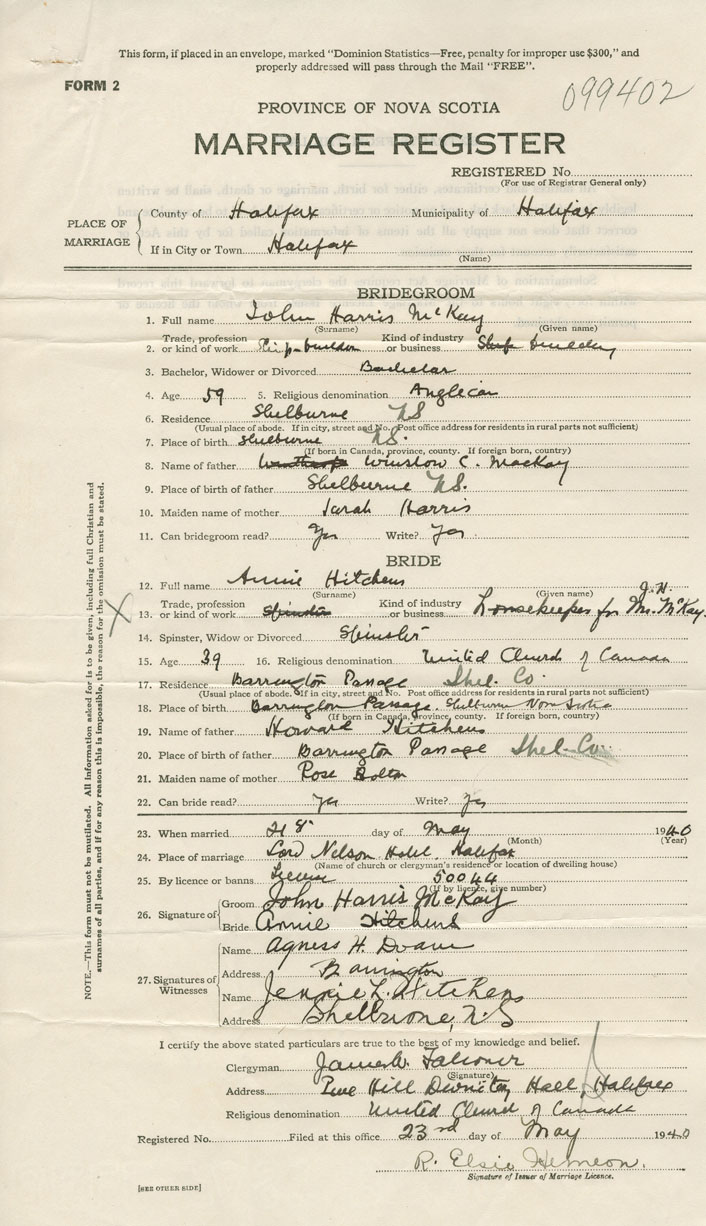 This form, if placed in an envelope, marked "Dominion Statistics—Free, penalty for improper use $300," and
properly addressed will pass through the Mail "FREE".
FORM 2
099402
PROVINCE OF NOVA SCOTIA
MARRIAGE REGISTER
REGISTERED No.
(For use of Registrar General only)
PLACE OF MARRIAGE
County of Halifax Municipality of Halifax
If in City or Town Halifax
(Name)
BRIDEGROOM
1. Full name John Harris McKay
(Surname) (Given name)
2. Trade, profession or kind of work Ship-builder Kind of industry or business Ship building
3. Bachelor, Widower or Divorced Bachelor
4. Age 59 5. Religious denomination Anglican
6. Residence Shelburne NS
(Usual place of abode. If in city, street and No. Post office address for residents in rural parts not sufficient)
7. Place of birth Shelburne NS.
(If born in Canada, province, county. If foreign born, country)
8. Name of father Winslow C. MacKay
9. Place of birth of father Shelburne NS.
10. Maiden name of mother Sarah Harris
11. Can bridegroom read? Yes Write? Yes
BRIDE
12. Full name Annie Hitchens
(Surname) (Given name)
13. Trade, profession or kind of work Spinster Kind of industry or business housekeeper for Mr. J.H. McKay.
14. Spinster, Widow or Divorced Spinster
15. Age 39 16. Religious denomination United Church of Canada
17. Residence Barrington Passage Shel. Co.
(Usual place of abode. If in city, street and No. Post office address for residents in rural parts not sufficient)
18. Place of birth Barrington Passage, Shelburne Nova Scotia
(If born in Canada, province, county. If foreign born, country)
19. Name of father Howard Hitchens
20. Place of birth of father Barrington Passage Shel-Co.
21. Maiden name of mother Rose
22. Can bride read? Yes Write? Yes
23. When married day of May 1940
(Month) (Year)
24. Place of marriage Lord Nelson Hotel, Halifax
(Name of church or clergyman's residence or location of dwelling house)
25. By licence or banns License 50044
(If by licence, give number)
26. Signature of
Groom John Harris McKay
Bride Annie Hitchens
27. Signatures of Witnesses
Name Agness H. Doane
Address Barrington
Name Jennie L. Hitchens
Address Shelbrone, N.S
I certify the above stated particulars are true to the best of my knowledge and belief.
Clergyman James Falconer
(Signature)
Address Pine Hill Divinity Hall, Halifax
Religious denomination United Church of Canada
Registered No. Filed at this office 23rd day of May 1940
R. Elsie Hemeon.
Signature of Issuer of Marriage Licence.
[SEE OTHER SIDE]
NOTE.—This form must not be mutilated. All information asked for is to be given, including full Christian and
surnames of all parties, and if for any reason this is impossible, the reason for the omission must be stated.